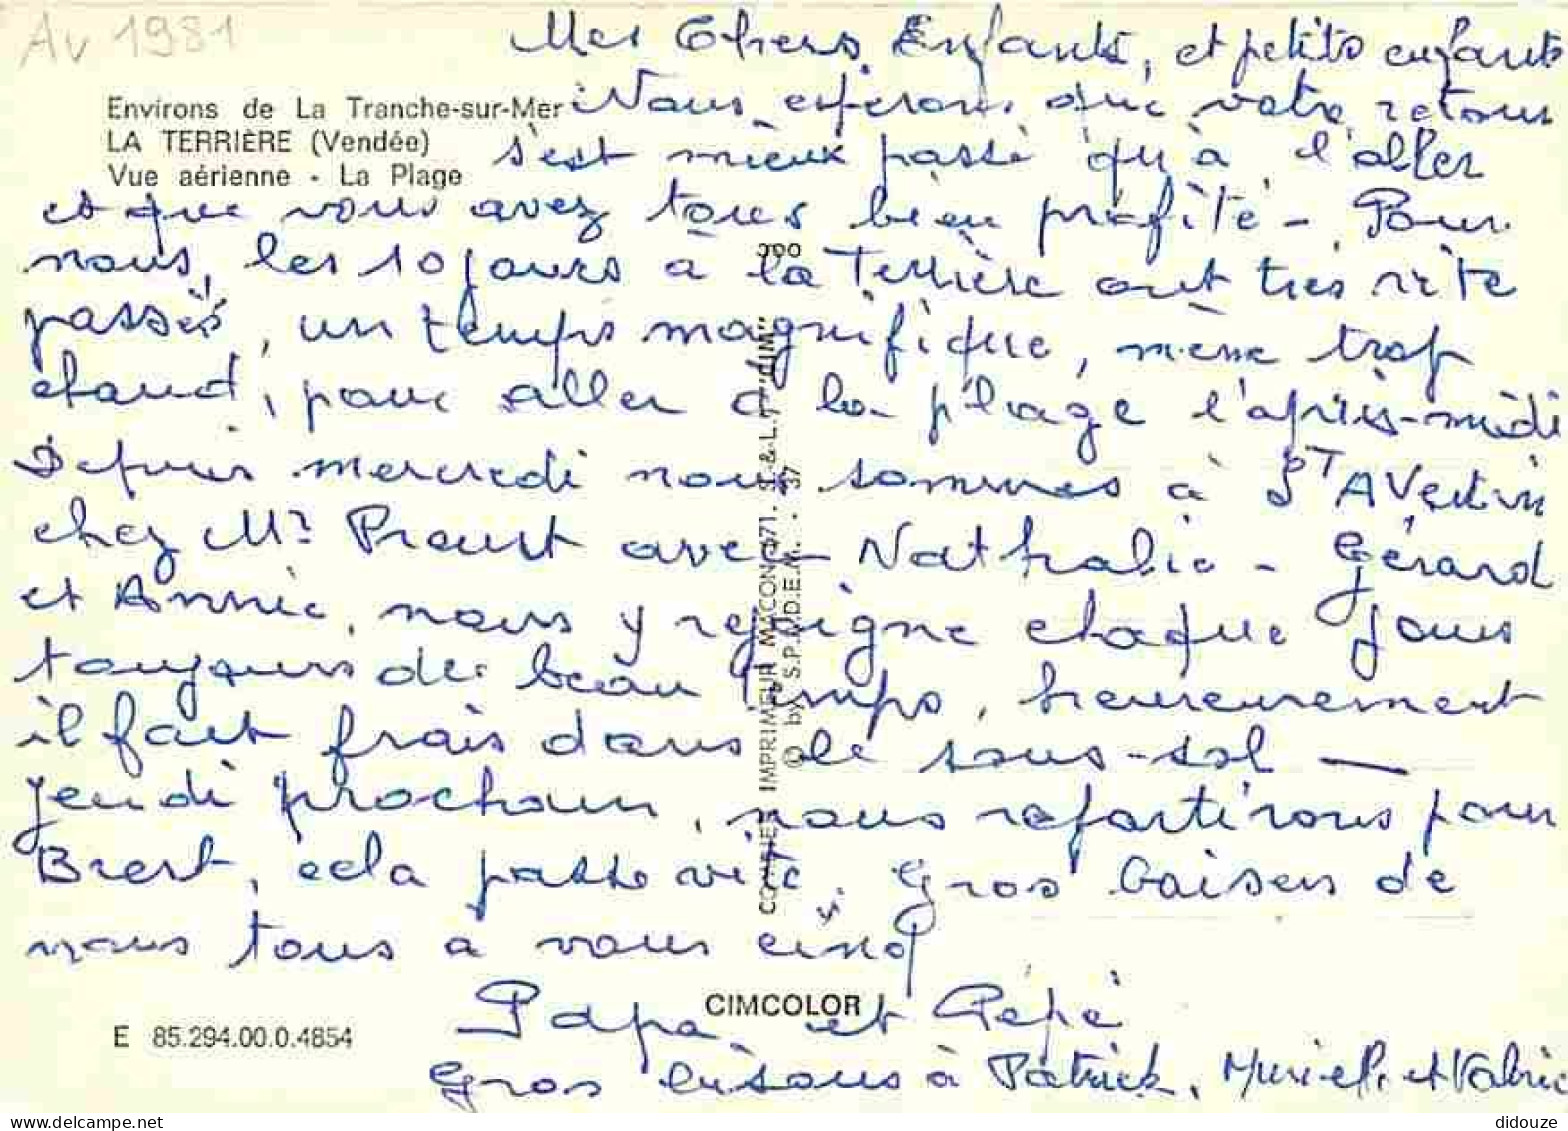 Av 1981
Mes Chers Enfants, et petits enfants
Environs de La Tranche-sur-Mer
LA TERRIÈRE (Vendée)
Vue aérienne - La Plage
Nous espérons que votre retour
s'est mieux passé qu'à l'aller
et que vous avez tous bien profité - Pour
nous, les 10 jours à la Terrière ont très vite
passés, un temps magnifique, même trop
chaud, pour aller à la plage l'après-midi
Depuis mercredi nous sommes à St Avertin
chez Mr Proust avec Nathalie - Gérard
et Annie, nous y rejoigne chaque jour
toujours du beau temps, heureusement
il fait frais dans le sous-sol —
jeudi prochain, nous repartirons pour
Brest, cela passe vite. Gros baisers de
nous tous à vous cinq
Papa et Pépé
Gros bisous à Patrick, Muriel, et Valérie
COMBIER IMPRIMEUR MACON 71. S. & L. "CIM"
© by S.P.A.D.E.M.
CIMCOLOR
E 85.294.00.0.4854
didouze